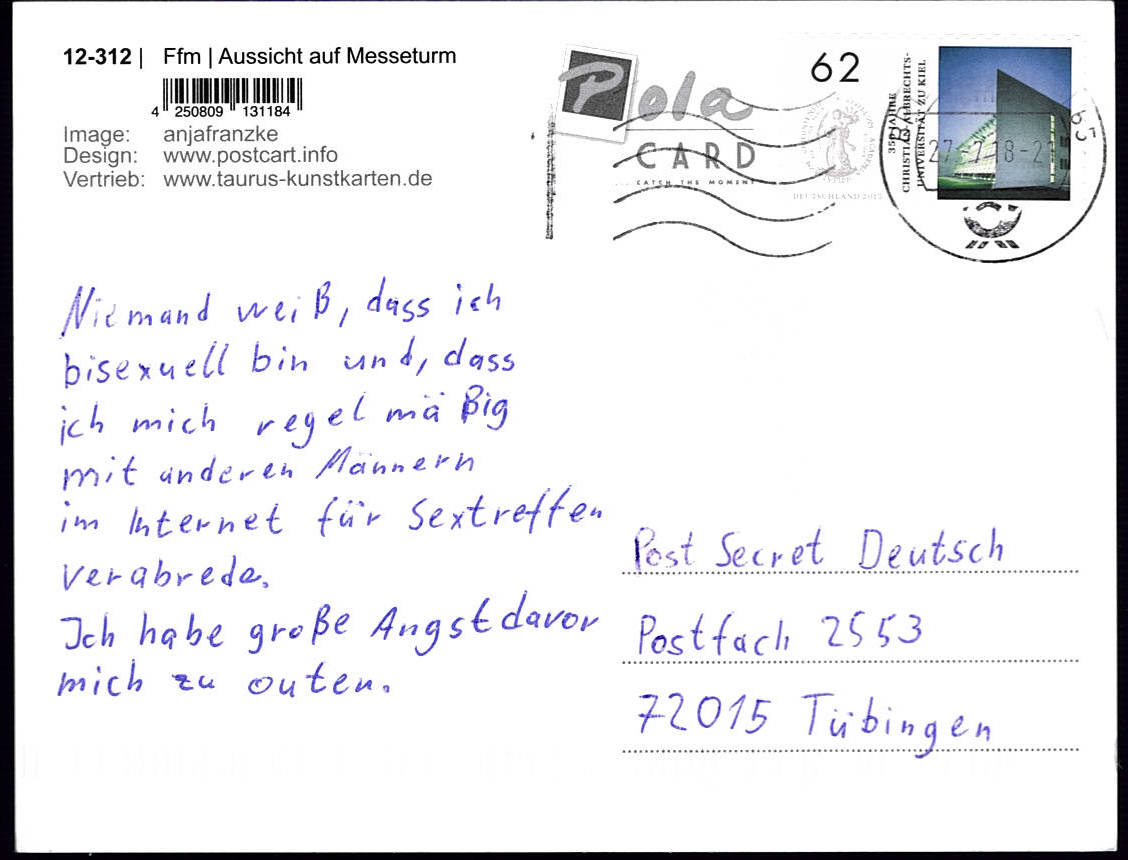 12-312 | Ffm | Aussicht auf Messeturm
4 250809 131184
Image: anjafranzke
Design: www.postcart.info
Vertrieb: www.taurus-kunstkarten.de
Pola
CARD
CATCH THE MOMENT
62
DEUTSCHLAND 2015
350 JAHRE
CHRISTIAN-ALBRECHTS-
UNIVERSITÄT ZU KIEL
65
27-7.18-2
Niemand weiß, dass ich
bisexuell bin und, dass
ich mich regelmäßig
mit anderen Männern
im Internet für Sextreffen
verabrede.
Ich habe große Angst davor
mich zu outen.
Post Secret Deutsch
Postfach 2553
72015 Tübingen